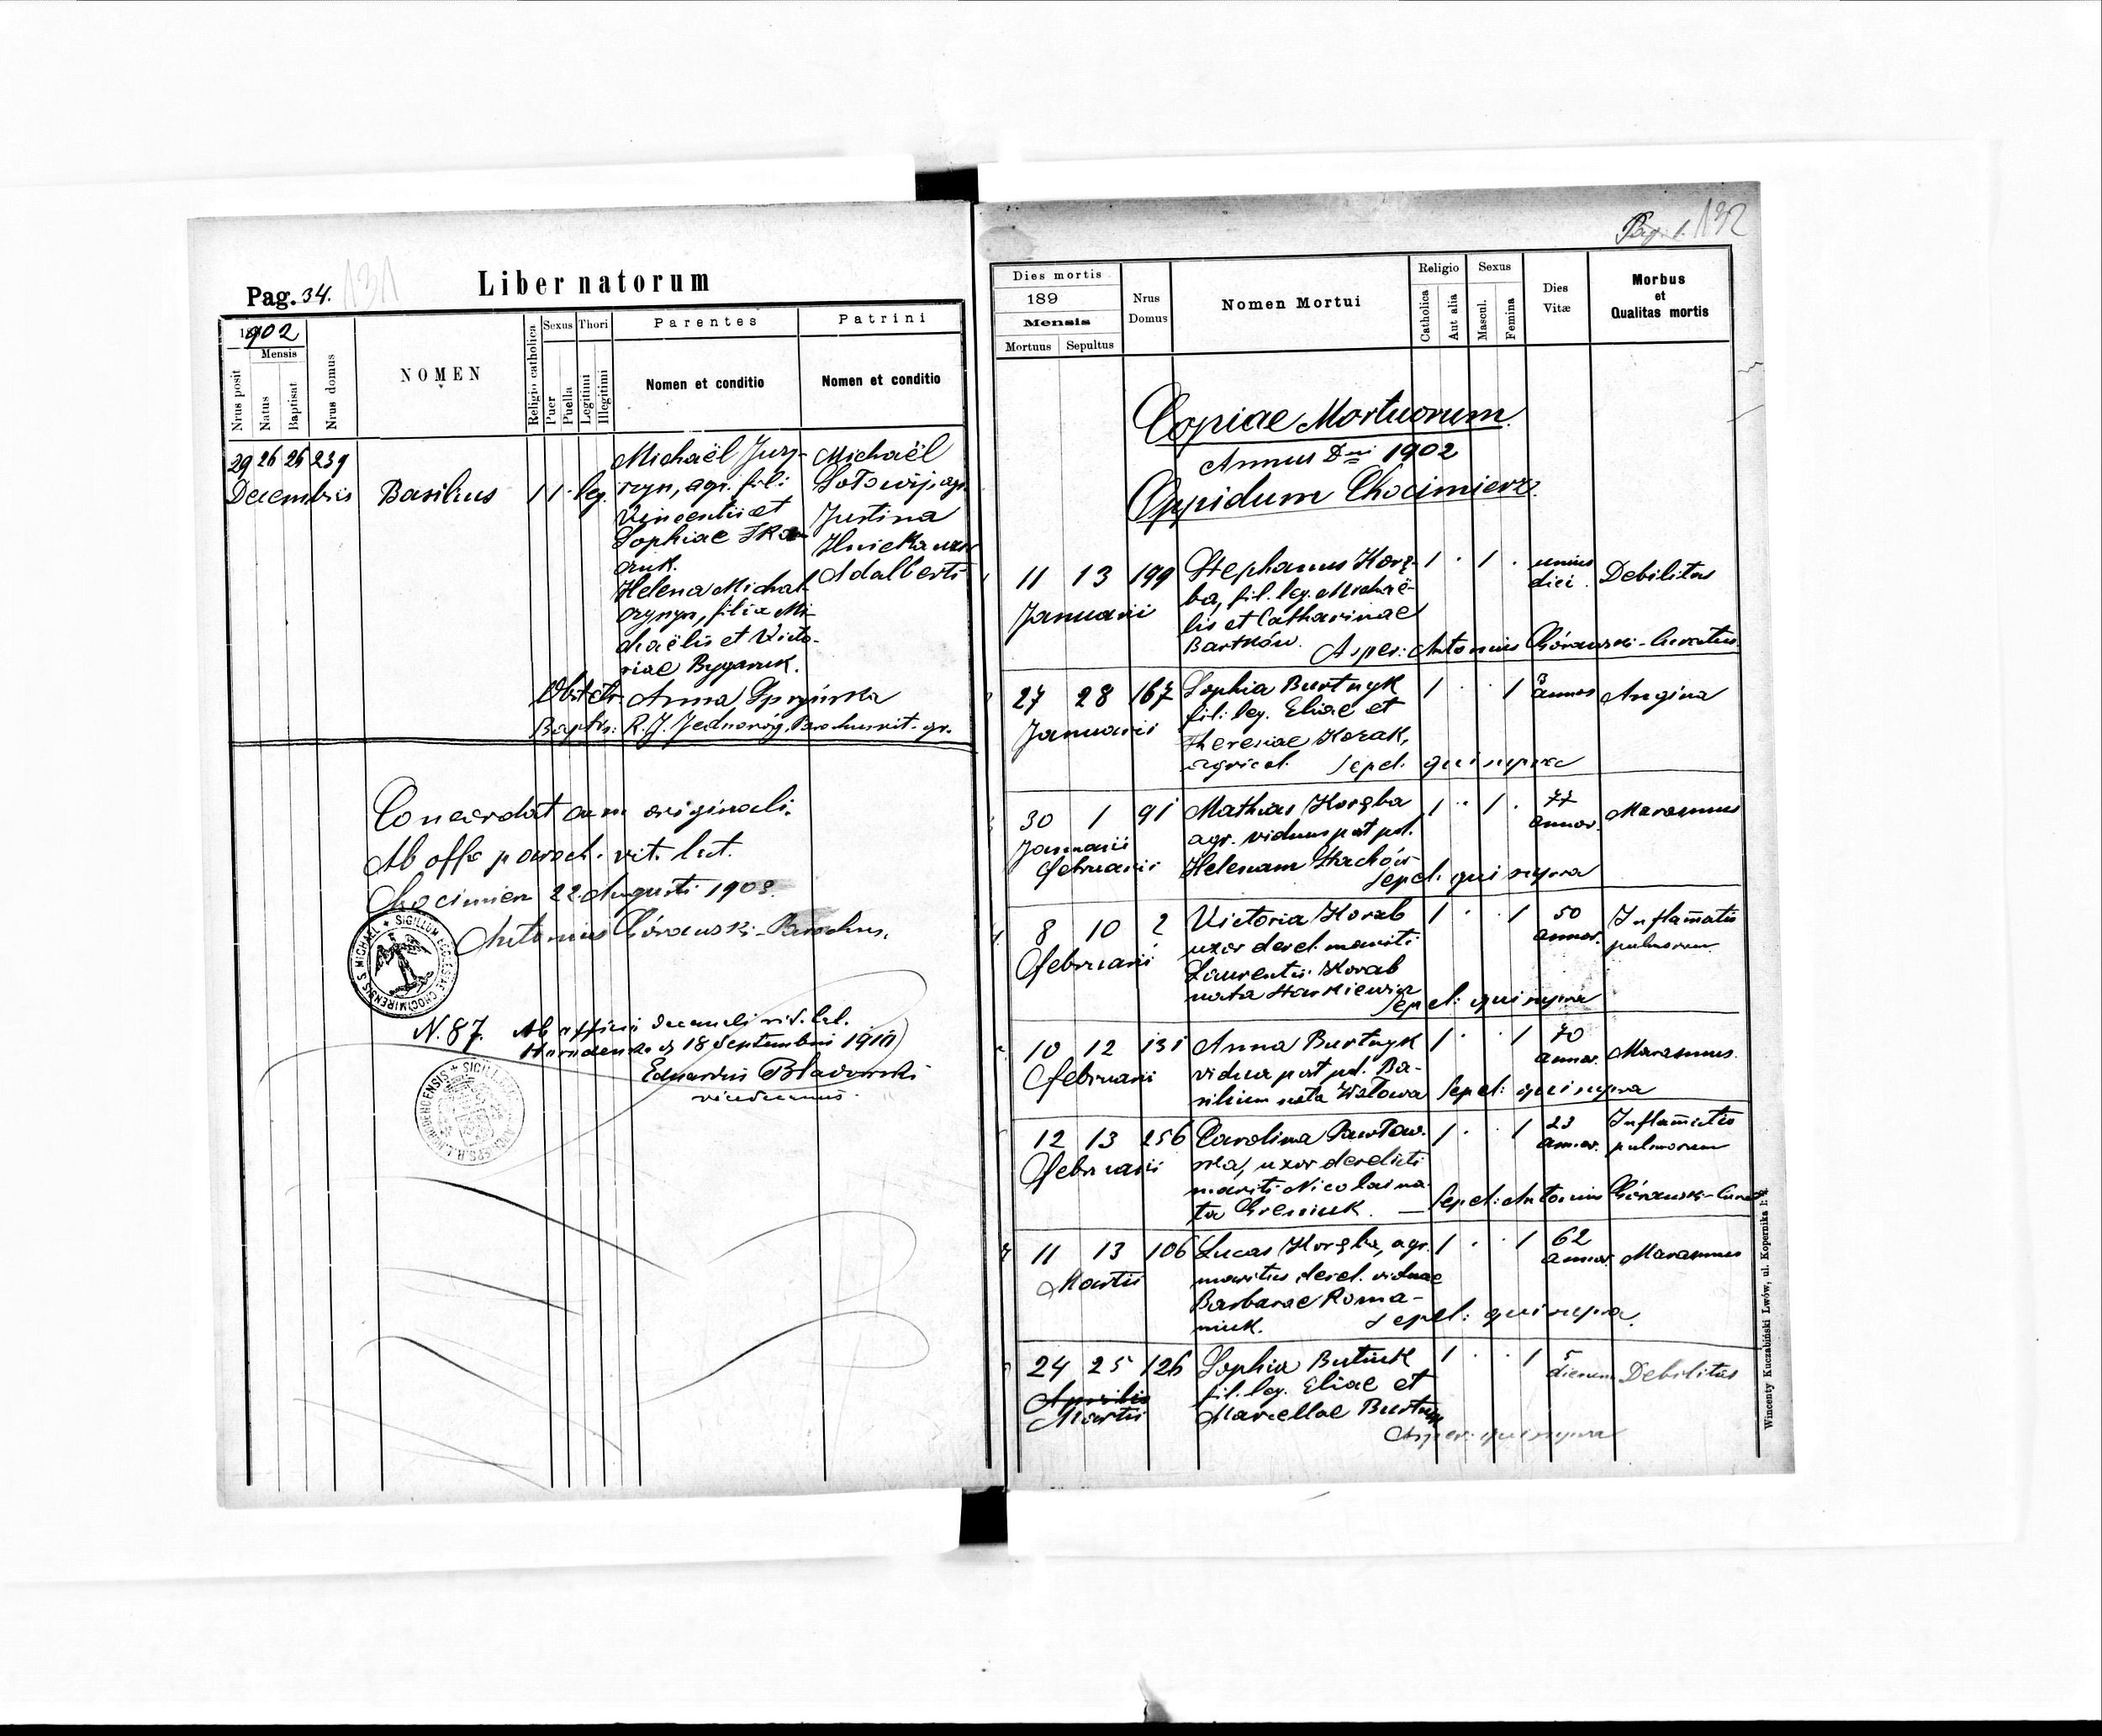 Pag. 34.
131
Liber natorum
1902
Mensis
Nrus posit
Natus
Baptisat
Nrus domus
NOMEN
Religio catholica
Sexus
Puer
Puella
Thori
Legitimi
Illegitimi
Parentes
Nomen et conditio
Patrini
Nomen et conditio
29 26 26 239
Decembris
Basilius
1 1 · leg.
Michaël Jury-
czyn, agr. fil:
Vincentii et
Sophiae
czuk.
Helena Michal-
czyszyn, filia Mi-
chaëlis et Victo-
riae
Michaël
agr.
Justina
uxor
Adalberti
Obstetr. Anna
Baptis: R. J. Jednoróg, Parochus rit. gr.
Concordat cum originali.
Ab offo paroch. rit. lat.
Chocimierz 22 Augusti 1908
Antonius Górawski - Parochus.
SIGILLUM ECCLESIAE CHOCIMIRENSIS S. MICHAEL
N. 87. Ab officii decanali rit. lat.
18 Septembris 1911
Eduardus
vicedecanus.
Pag. 1. 132
Dies mortis
189
Mensis
Mortuus
Sepultus
Nrus
Domus
Nomen Mortui
Religio
Catholica
Aut alia
Sexus
Mascul.
Femina
Dies
Vitæ
Morbus
et
Qualitas mortis
Copiae Mortuorum
Annus Dni 1902
Oppidum Chocimierz.
11 13 199 Stephanus Korż- 1 · 1 · unius
ba, fil. leg. Michaë- diei. Debilitas
Januarii lis et Catharinae
Bartków. Asper: Antonius Górawski - Curatus
27 28 167 Sophia Burtnyk 1 · · 1 3 annos Angina
Januarii fil: leg. Eliae et
Theresiae Kozak,
agricol. Sepel. qui supra
30 1 91 Mathias Korżba 1 · 1 · 77 annor. Marasmus
Januarii agr. viduus post pd.
Februarii Helenam Stachów
Sepel: qui supra
8 10 2 Victoria Korab 1 · · 1 50 annor. Inflamatio
Februarii uxor derel. mariti pulmorum
Laurentii Korab
nata Stankiewicz
Sepel: qui supra
10 12 131 Anna Burtnyk 1 · · 1 70 annor. Marasmus.
Februarii vidua post pd. Ba-
silium nata Wisłowa Sepel: qui supra
12 13 256 Carolina Pawłow- 1 · · 1 23 annor. Inflamatio
Februarii ska, uxor derelicti pulmorum
mariti Nicolai na-
ta Greniuk. — Sepel: Antonius Górawski - Curat
11 13 106 Lucas Korżba, agr. 1 · · 1 62 annor. Marasmus
Martii maritus derel. viduae
Barbarae Roma-
niuk. Sepel: qui supra.
24 25 126 Sophia Butiuk 1 · · 1 5 dierum Debilitas
Aprilis fil. leg. Eliae et
Martii Marcellae Burtnyk
Asper: qui supra
Wincenty Kuczabiński Lwów, ul. Kopernika l: